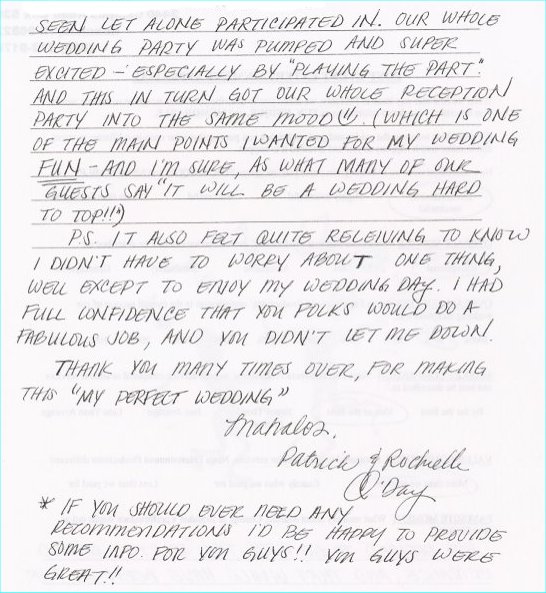 SEEN LET ALONE PARTICIPATED IN. OUR WHOLE
WEDDING PARTY WAS PUMPED AND SUPER
EXCITED - ESPECIALLY BY "PLAYING THE PART".
AND THIS IN TURN GOT OUR WHOLE RECEPTION
PARTY INTO THE SAME MOOD (WHICH IS ONE
OF THE MAIN POINTS I WANTED FOR MY WEDDING
FUN - AND I'M SURE, AS WHAT MANY OF OUR
GUESTS SAY "IT WILL BE A WEDDING HARD
TO TOP!!")
P.S. IT ALSO FELT QUITE RELEIVING TO KNOW
I DIDN'T HAVE TO WORRY ABOUT ONE THING,
WELL EXCEPT TO ENJOY MY WEDDING DAY. I HAD
FULL CONFIDENCE THAT YOU FOLKS WOULD DO A
FABULOUS JOB, AND YOU DIDN'T LET ME DOWN.
THANK YOU MANY TIMES OVER, FOR MAKING
THIS "MY PERFECT WEDDING"
Mahalos,
Patrick & Rochelle
O'Day
* IF YOU SHOULD EVER NEED ANY
RECOMMENDATIONS I'D BE HAPPY TO PROVIDE
SOME INFO. FOR YOU GUYS!! YOU GUYS WERE
GREAT!!